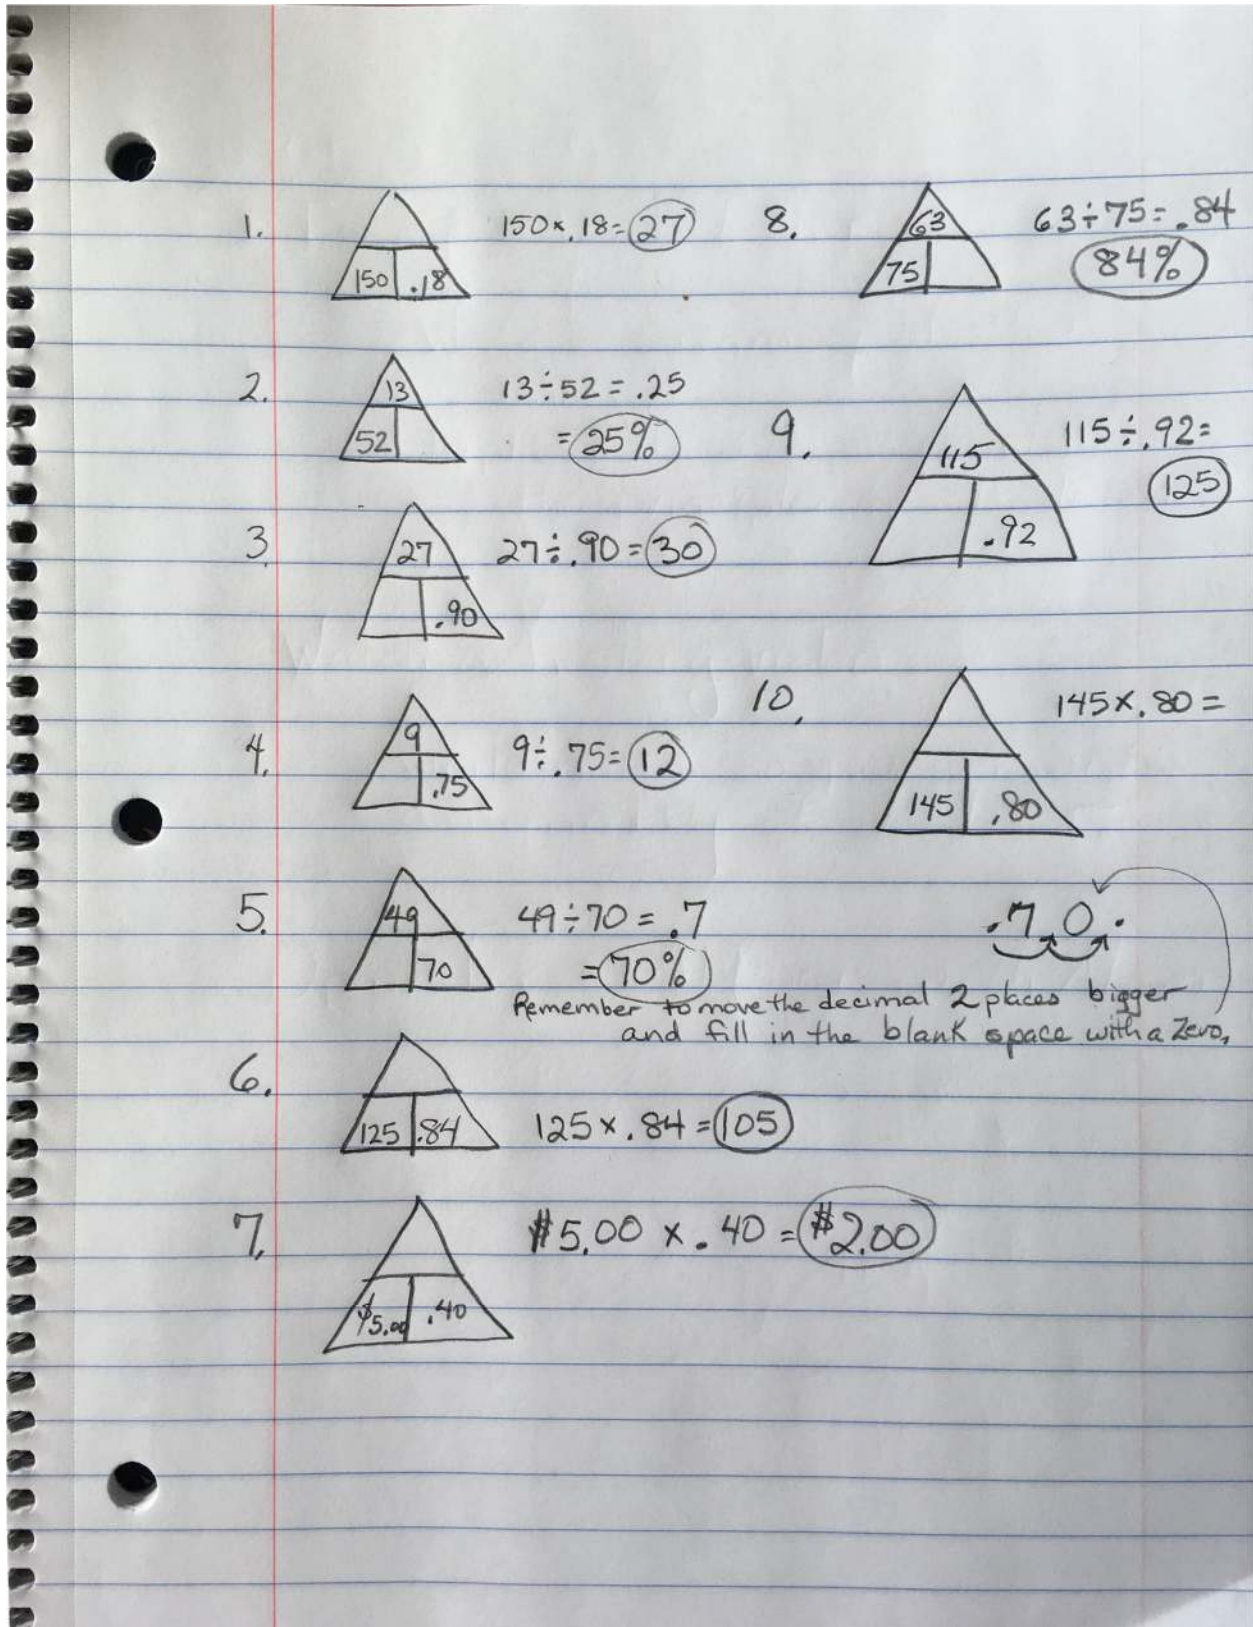 1.
150 .18
150 x .18 = 27
2.
13
52
13 ÷ 52 = .25
= 25%
3.
27
.90
27 ÷ .90 = 30
4.
9
.75
9 ÷ .75 = 12
5.
49
70
49 ÷ 70 = .7
= 70%
Remember to move the decimal 2 places bigger
and fill in the blank space with a zero,
.70.
6.
125 .84
125 x .84 = 105
7.
$5.00 .40
$5.00 x .40 = $2.00
8.
63
75
63 ÷ 75 = .84
84%
9.
115
.92
115 ÷ .92 =
125
10.
145 .80
145 x .80 =